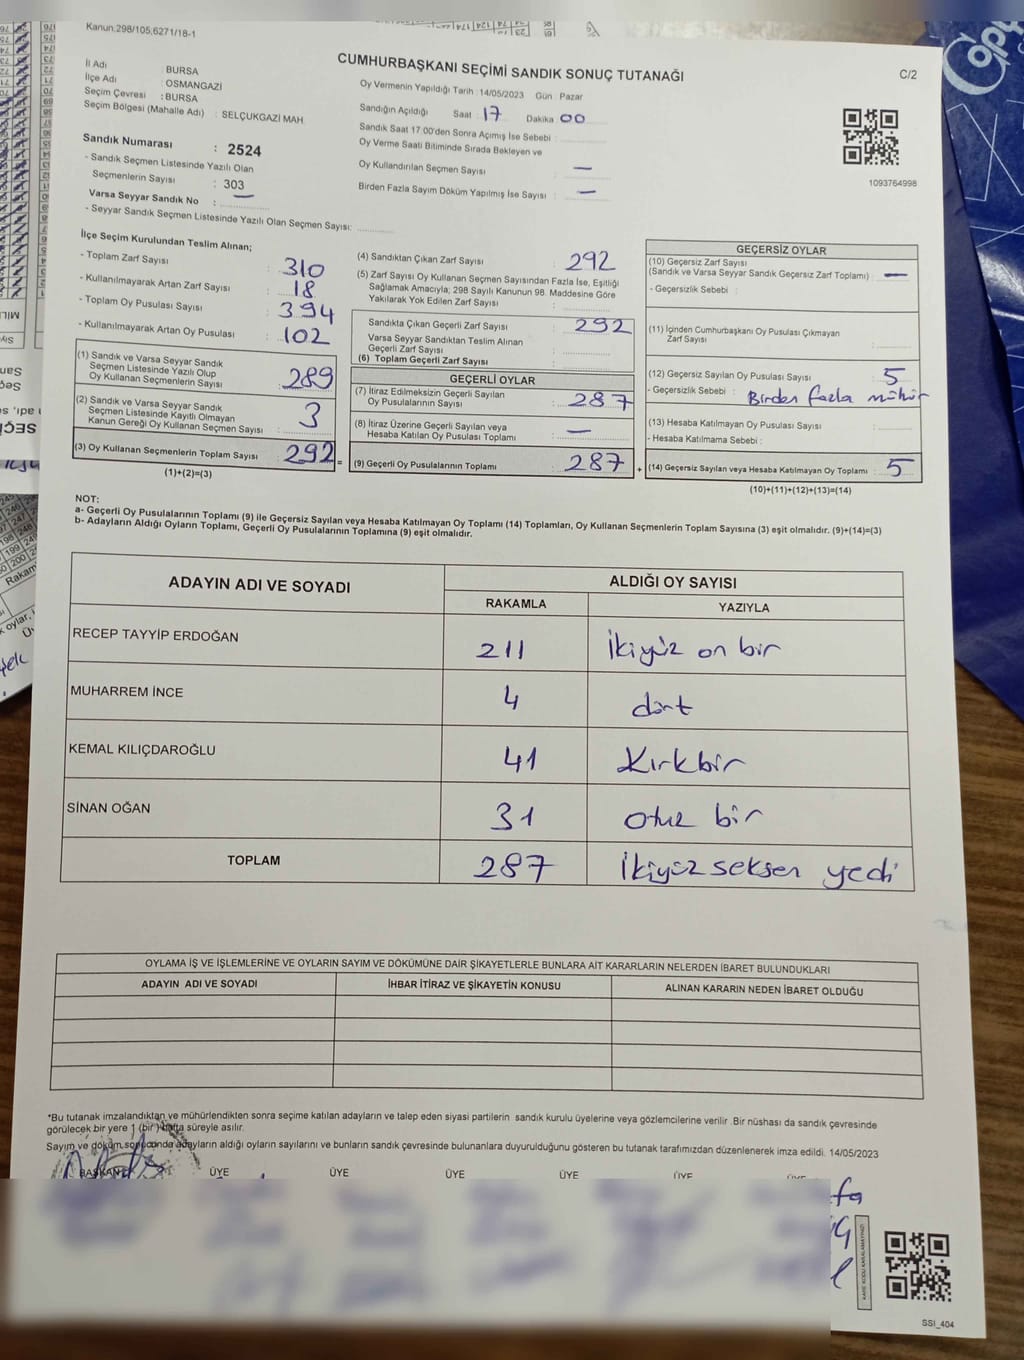 Kanun.298/105,6271/18-1
CUMHURBAŞKANI SEÇİMİ SANDIK SONUÇ TUTANAĞI
C/2
İl Adı : BURSA
İlçe Adı : OSMANGAZİ
Seçim Çevresi : BURSA
Seçim Bölgesi (Mahalle Adı) : SELÇUKGAZİ MAH.
Sandık Numarası : 2524
- Sandık Seçmen Listesinde Yazılı Olan
Seçmenlerin Sayısı : 303
Varsa Seyyar Sandık No : —
- Seyyar Sandık Seçmen Listesinde Yazılı Olan Seçmen Sayısı:
Oy Vermenin Yapıldığı Tarih :14/05/2023 Gün : Pazar
Sandığın Açıldığı Saat : 17 Dakika 00
Sandık Saat 17.00'den Sonra Açımış İse Sebebi :
Oy Verme Saati Bitiminde Sırada Bekleyen ve
Oy Kullandırılan Seçmen Sayısı : —
Birden Fazla Sayım Döküm Yapılmış İse Sayısı : —
1093764998
İlçe Seçim Kurulundan Teslim Alınan;
- Toplam Zarf Sayısı : 310
- Kullanılmayarak Artan Zarf Sayısı : 18
- Toplam Oy Pusulası Sayısı : 394
- Kullanılmayarak Artan Oy Pusulası : 102
(1) Sandık ve Varsa Seyyar Sandık
Seçmen Listesinde Yazılı Olup
Oy Kullanan Seçmenlerin Sayısı : 289
(2) Sandık ve Varsa Seyyar Sandık
Seçmen Listesinde Kayıtlı Olmayan
Kanun Gereği Oy Kullanan Seçmen Sayısı : 3
(3) Oy Kullanan Seçmenlerin Toplam Sayısı : 292 =
(1)+(2)=(3)
(4) Sandıktan Çıkan Zarf Sayısı : 292
(5) Zarf Sayısı Oy Kullanan Seçmen Sayısından Fazla İse, Eşitliği
Sağlamak Amacıyla; 298 Sayılı Kanunun 98. Maddesine Göre
Yakılarak Yok Edilen Zarf Sayısı :
Sandıkta Çıkan Geçerli Zarf Sayısı : 292
Varsa Seyyar Sandıktan Teslim Alınan
Geçerli Zarf Sayısı :
(6) Toplam Geçerli Zarf Sayısı :
GEÇERLİ OYLAR
(7) İtiraz Edilmeksizin Geçerli Sayılan
Oy Pusulalarının Sayısı : 287
(8) İtiraz Üzerine Geçerli Sayılan veya
Hesaba Katılan Oy Pusulası Toplamı : —
(9) Geçerli Oy Pusulalarının Toplamı : 287 +
GEÇERSİZ OYLAR
(10) Geçersiz Zarf Sayısı
(Sandık ve Varsa Seyyar Sandık Geçersiz Zarf Toplamı) : —
- Geçersizlik Sebebi :
(11) İçinden Cumhurbaşkanı Oy Pusulası Çıkmayan
Zarf Sayısı :
(12) Geçersiz Sayılan Oy Pusulası Sayısı : 5
- Geçersizlik Sebebi : Birden fazla mühür
(13) Hesaba Katılmayan Oy Pusulası Sayısı :
- Hesaba Katılmama Sebebi :
(14) Geçersiz Sayılan veya Hesaba Katılmayan Oy Toplamı : 5
(10)+(11)+(12)+(13)=(14)
NOT:
a- Geçerli Oy Pusulalarının Toplamı (9) ile Geçersiz Sayılan veya Hesaba Katılmayan Oy Toplamı (14) Toplamları, Oy Kullanan Seçmenlerin Toplam Sayısına (3) eşit olmalıdır. (9)+(14)=(3)
b- Adayların Aldığı Oyların Toplamı, Geçerli Oy Pusulalarının Toplamına (9) eşit olmalıdır.
ADAYIN ADI VE SOYADI ALDIĞI OY SAYISI
RAKAMLA YAZIYLA
RECEP TAYYİP ERDOĞAN 211 İkiyüz on bir
MUHARREM İNCE 4 dört
KEMAL KILIÇDAROĞLU 41 Kırkbir
SİNAN OĞAN 31 otuz bir
TOPLAM 287 İkiyüz seksen yedi
OYLAMA İŞ VE İŞLEMLERİNE VE OYLARIN SAYIM VE DÖKÜMÜNE DAİR ŞİKAYETLERLE BUNLARA AİT KARARLARIN NELERDEN İBARET BULUNDUKLARI
ADAYIN ADI VE SOYADI İHBAR İTİRAZ VE ŞİKAYETİN KONUSU ALINAN KARARIN NEDEN İBARET OLDUĞU
*Bu tutanak imzalandıktan ve mühürlendikten sonra seçime katılan adayların ve talep eden siyasi partilerin sandık kurulu üyelerine veya gözlemcilerine verilir .Bir nüshası da sandık çevresinde
görülecek bir yere 1 (bir) hafta süreyle asılır.
Sayım ve döküm sonucunda adayların aldığı oyların sayılarını ve bunların sandık çevresinde bulunanlara duyurulduğunu gösteren bu tutanak tarafımızdan düzenlenerek imza edildi. 14/05/2023
BAŞKAN ÜYE ÜYE ÜYE ÜYE ÜYE ÜYE
SSİ_404